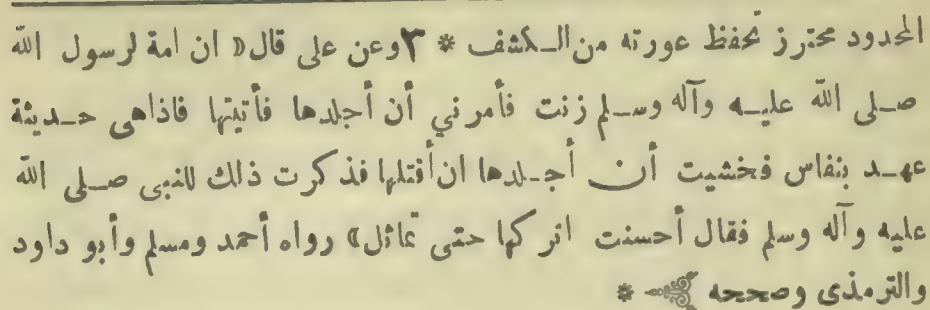 المحدود محترز تحفظ عورته من الكشف * ٣ وعن على قال «ان امة لرسول الله
صلى الله عليه وآله وسلم زنت فأمرني أن أجلدها فأتيتها فاذاهى حديثة
عهد بنفاس فخشيت أن أجلدها ان أقتلها فذكرت ذلك للنبى صلى الله
عليه وآله وسلم فقال أحسنت اتركها حتى تماثل» رواه أحمد ومسلم وأبو داود
والترمذى وصححه *